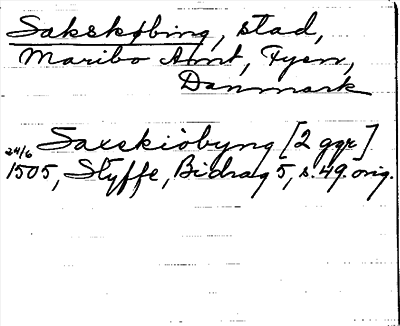 Sakskøbing, stad,
Maribo Amt, Fyen,
Danmark
Saxskiöbyng [2 ggr]
24/6 1505, Styffe, Bidrag 5, s. 49. orig.